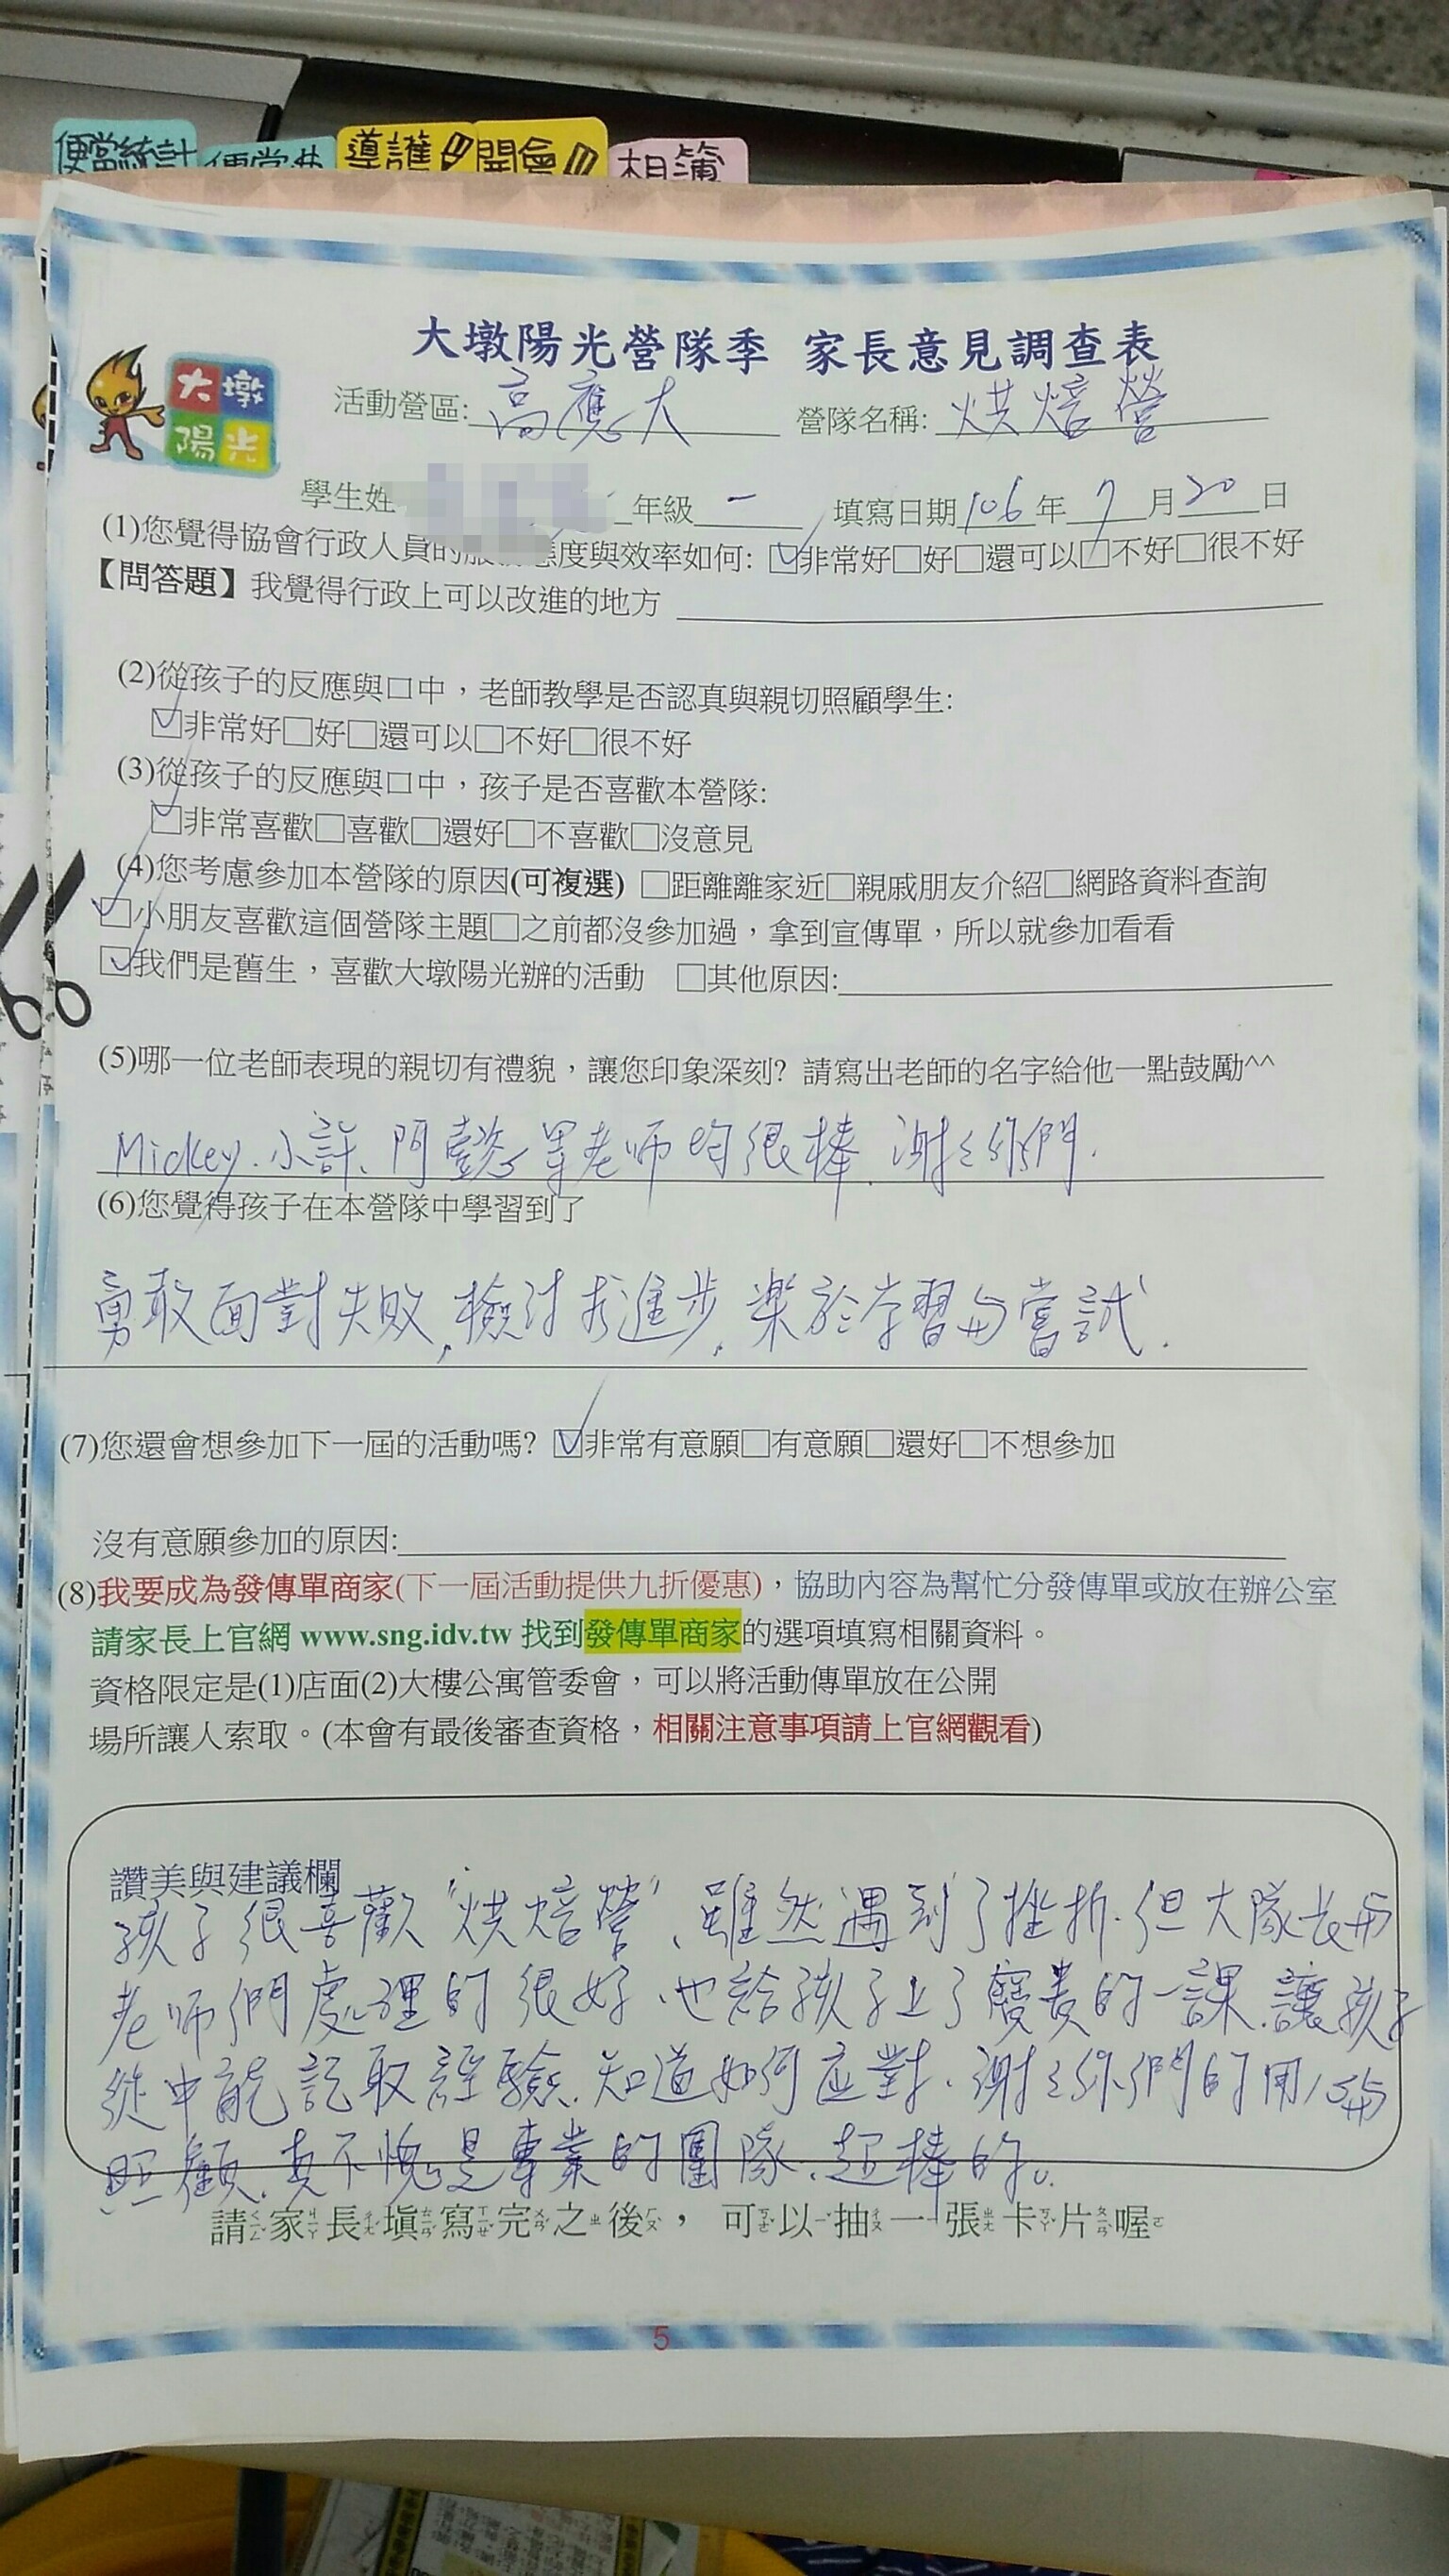 便當統計
導護
開會
相簿
大墩陽光
大墩陽光營隊季 家長意見調查表
活動營區: 高應大 營隊名稱: 烘焙營
學生姓 年級 一 填寫日期 106 年 7 月 20 日
(1)您覺得協會行政人員的服 態度與效率如何: ☑非常好□好□還可以□不好□很不好
【問答題】我覺得行政上可以改進的地方
(2)從孩子的反應與口中，老師教學是否認真與親切照顧學生:
☑非常好□好□還可以□不好□很不好
(3)從孩子的反應與口中，孩子是否喜歡本營隊:
☑非常喜歡□喜歡□還好□不喜歡□沒意見
(4)您考慮參加本營隊的原因(可複選) □距離離家近□親戚朋友介紹□網路資料查詢
☑小朋友喜歡這個營隊主題□之前都沒參加過，拿到宣傳單，所以就參加看看
☑我們是舊生，喜歡大墩陽光辦的活動 □其他原因:
(5)哪一位老師表現的親切有禮貌，讓您印象深刻? 請寫出老師的名字給他一點鼓勵^^
Mickey.小許、阿 老师均很棒.謝々你們.
(6)您覺得孩子在本營隊中學習到了
勇敢面對失敗,檢討求進步,楽於学習与嘗試.
(7)您還會想參加下一屆的活動嗎? ☑非常有意願□有意願□還好□不想參加
沒有意願參加的原因:
(8)我要成為發傳單商家(下一屆活動提供九折優惠)，協助內容為幫忙分發傳單或放在辦公室
請家長上官網 www.sng.idv.tw 找到發傳單商家的選項填寫相關資料。
資格限定是(1)店面(2)大樓公寓管委會，可以將活動傳單放在公開
場所讓人索取。(本會有最後審查資格，相關注意事項請上官網觀看)
讚美與建議欄
孩子很喜歡“烘焙營”、雖然遇到了挫折.但大隊長与
老师們處理的很好、也給孩子上了寶貴的一課.讓孩子
從中能記取經驗.知道如何应對.謝々你們的用心与
照顧.真不愧是專業的團隊.超棒的。
請家長填寫完之後，可以抽一張卡片喔
5